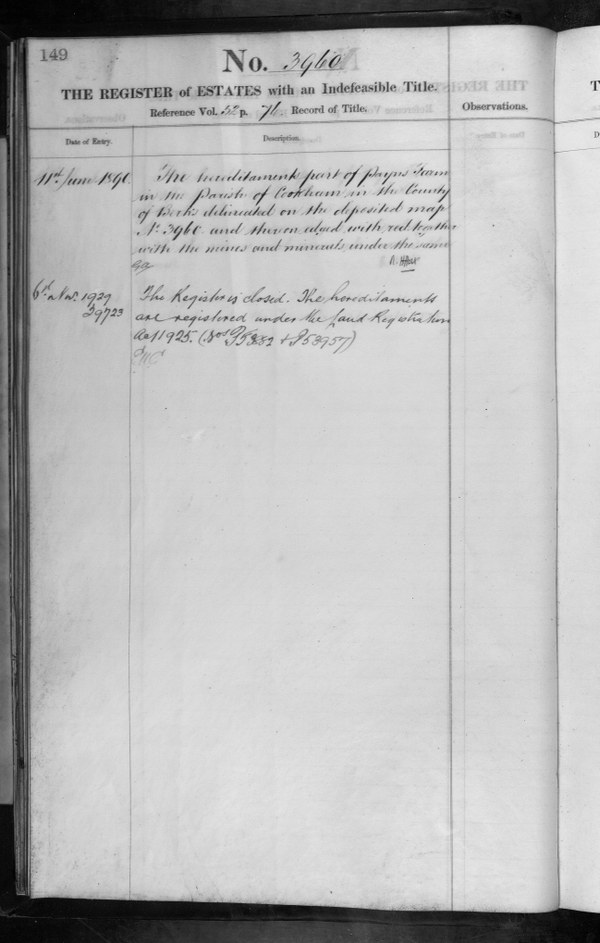 149
No. 3960
THE REGISTER of ESTATES with an Indefeasible Title.
Reference Vol. 52 p. 76 Record of Title.
Observations.
Date of Entry.
Description.
11th June 1890.
The hereditaments part of Farm
in the Parish of Cookham in the County
of Berks delineated on the deposited map
No. 3960 and thereon edged with red together
with the mines and minerals under the same
6th Nov. 1929
39723
The Register is closed. The hereditaments
are registered under the Land Registration
Act 1925. (Nos & P53957)